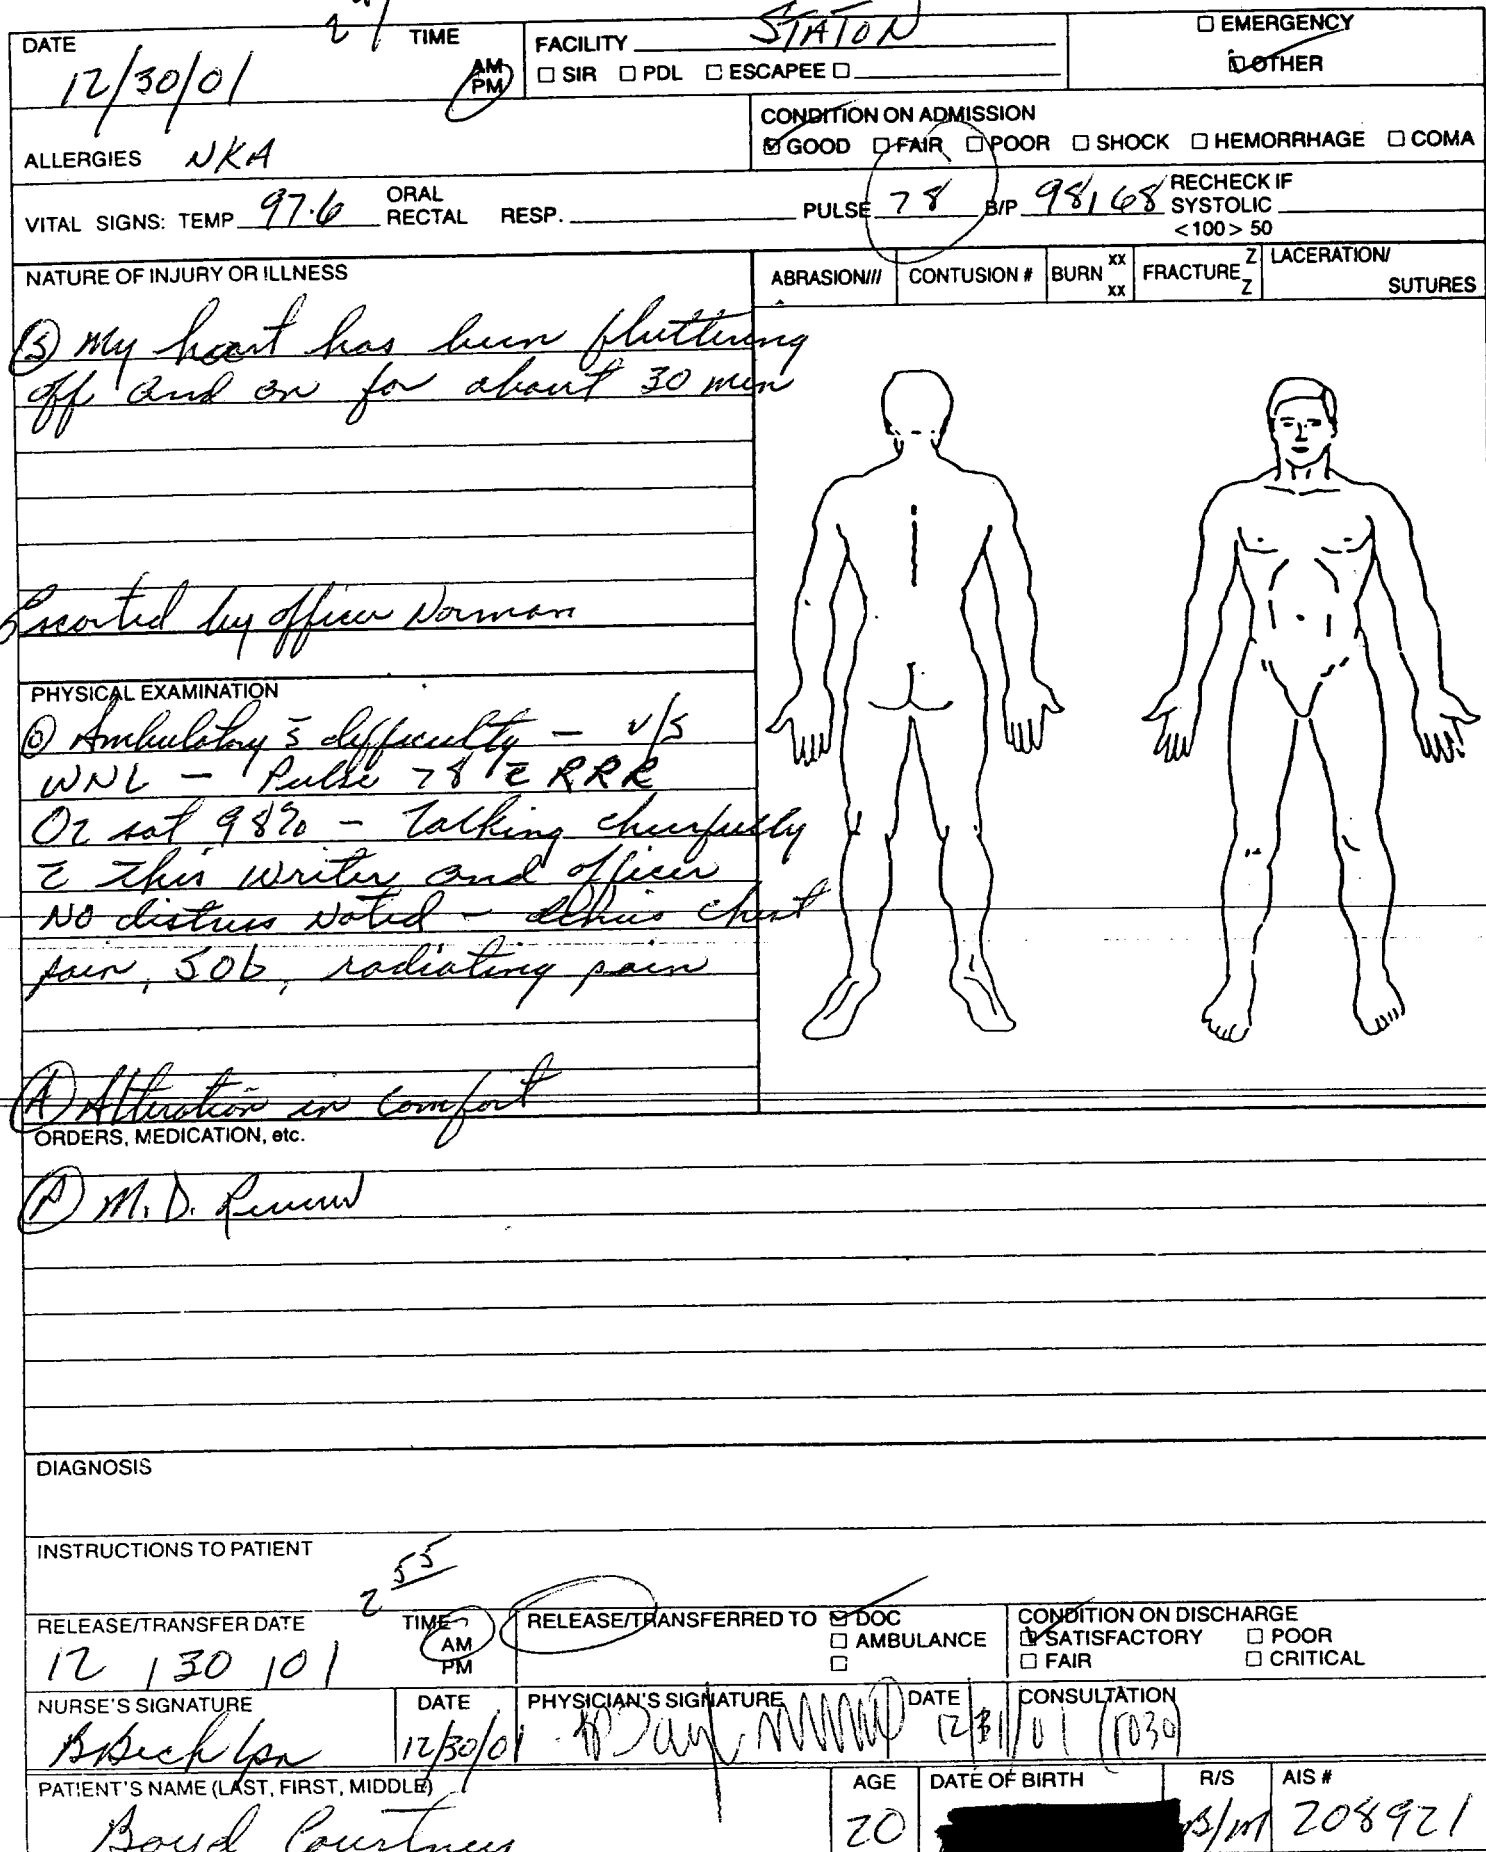 DATE 12/30/01 TIME AM PM FACILITY STATON □ EMERGENCY
□ SIR □ PDL □ ESCAPEE □ ☑ OTHER
ALLERGIES NKA
CONDITION ON ADMISSION
☑ GOOD □ FAIR □ POOR □ SHOCK □ HEMORRHAGE □ COMA
VITAL SIGNS: TEMP 97.6 ORAL RECTAL RESP. PULSE 78 B/P 98/68 RECHECK IF SYSTOLIC <100> 50
NATURE OF INJURY OR ILLNESS
ABRASION/// CONTUSION # BURN xx xx FRACTURE Z Z LACERATION/ SUTURES
(S) My heart has been fluttering
off and on for about 30 min
Escorted by officer Norman
PHYSICAL EXAMINATION
(O) Ambulatory s̄ difficulty — v/s
WNL — Pulse 78 c̄ RRR
O2 sat 98% — Talking cheerfully
c̄ this writer and officer
No distress Noted — denies chest
pain, SOb, radiating pain
(A) Alteration in Comfort
ORDERS, MEDICATION, etc.
(P) M.D. Review
DIAGNOSIS
INSTRUCTIONS TO PATIENT
RELEASE/TRANSFER DATE 12 / 30 / 01 TIME 2 55 AM PM
RELEASE/TRANSFERRED TO ☑ DOC
□ AMBULANCE
□
CONDITION ON DISCHARGE
☑ SATISFACTORY □ POOR
□ FAIR □ CRITICAL
NURSE'S SIGNATURE DATE 12/30/01 PHYSICIAN'S SIGNATURE DATE 12/31/01 CONSULTATION (1030)
PATIENT'S NAME (LAST, FIRST, MIDDLE) AGE DATE OF BIRTH R/S AIS #
Boyd Courtney 20 B/M 208921